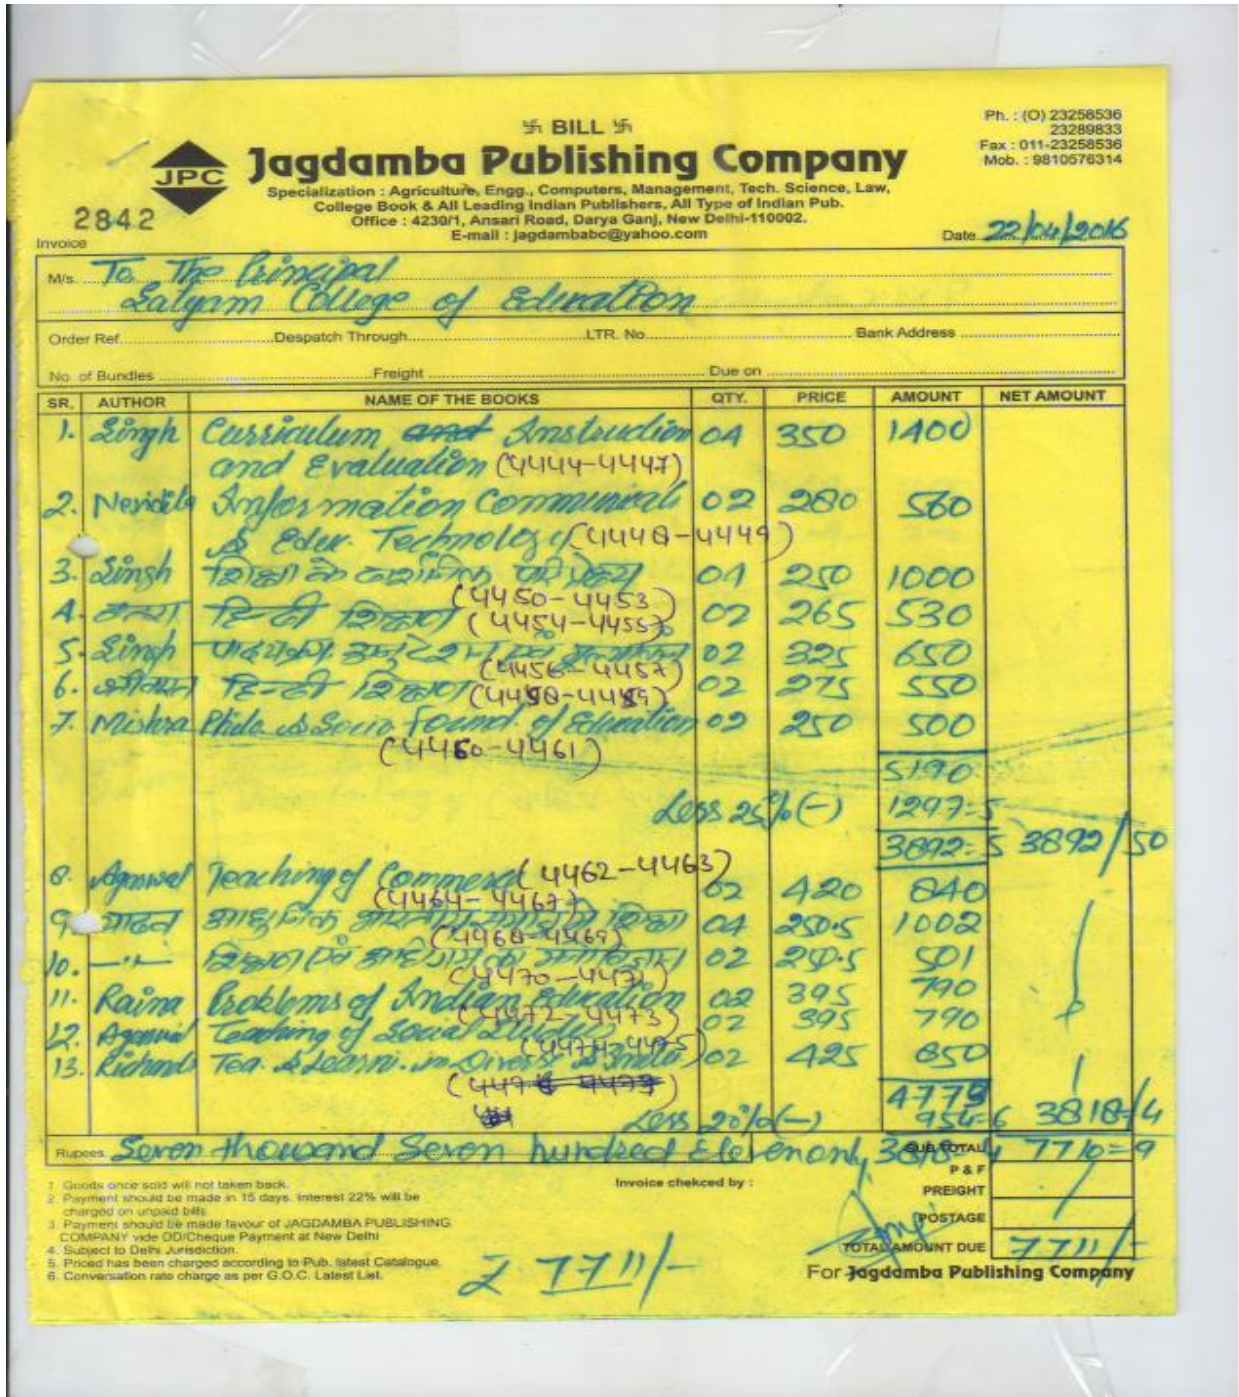 卐 BILL 卐
Ph. : (O) 23258536
23289833
Fax : 011-23258536
Mob. : 9810576314
JPC
Jagdamba Publishing Company
Specialization : Agriculture, Engg., Computers, Management, Tech. Science, Law,
College Book & All Leading Indian Publishers, All Type of Indian Pub.
Office : 4230/1, Ansari Road, Darya Ganj, New Delhi-110002.
E-mail : jagdambabc@yahoo.com
2842
Invoice
Date 22/04/2016
M/s. To, The Principal
Satyam College of Education
Order Ref. Despatch Through LTR. No. Bank Address
No. of Bundles Freight Due on
SR. AUTHOR NAME OF THE BOOKS QTY. PRICE AMOUNT NET AMOUNT
1. Singh Curriculum and Instruction 04 350 1400
and Evaluation (4444-4447)
2. Information Communicati 02 280 560
& Edu. Technology (4448-4449)
3. Singh शिक्षा के दार्शनिक परिप्रेक्ष्य 04 250 1000
(4450-4453)
4. हिन्दी शिक्षण (4454-4455) 02 265 530
5. Singh 02 325 650
(4456-4457)
6. हिन्दी शिक्षण (4458-4459) 02 275 550
7. Mishra Philo & Socio Found. of Education 02 250 500
(4460-4461)
5190
Less 25% (-) 1297=5
3892=5 3892/50
8. Agarwal Teaching of Commerce (4462-4463) 02 420 840
(4464-4467)
9. यादव 04 250.5 1002
(4468-4469)
10. -"- 02 250.5 501
(4470-4471)
11. Raina Problems of Indian Education 02 395 790
(4472-4473)
12. Agarwal Teaching of Social Studies 02 395 790
(4474-4475)
13. Tea. & Learni. in 02 425 850
4773
Less 20% (-) 954=6 3818=4
Rupees Seven thousand Seven hundred Eleven only 3818=4 SUB TOTAL 7710=9
P & F
PREIGHT
POSTAGE
TOTAL AMOUNT DUE 7711/-
Invoice chekced by :
1. Goods once sold will not taken back.
2. Payment should be made in 15 days. Interest 22% will be
charged on unpaid bills
3. Payment should be made favour of JAGDAMBA PUBLISHING
COMPANY vide DD/Cheque Payment at New Delhi
4. Subject to Delhi Jurisdiction.
5. Priced has been charged according to Pub. latest Catalogue.
6. Conversation rate charge as per G.O.C. Latest List.
₹ 7711/-
For Jagdamba Publishing Company